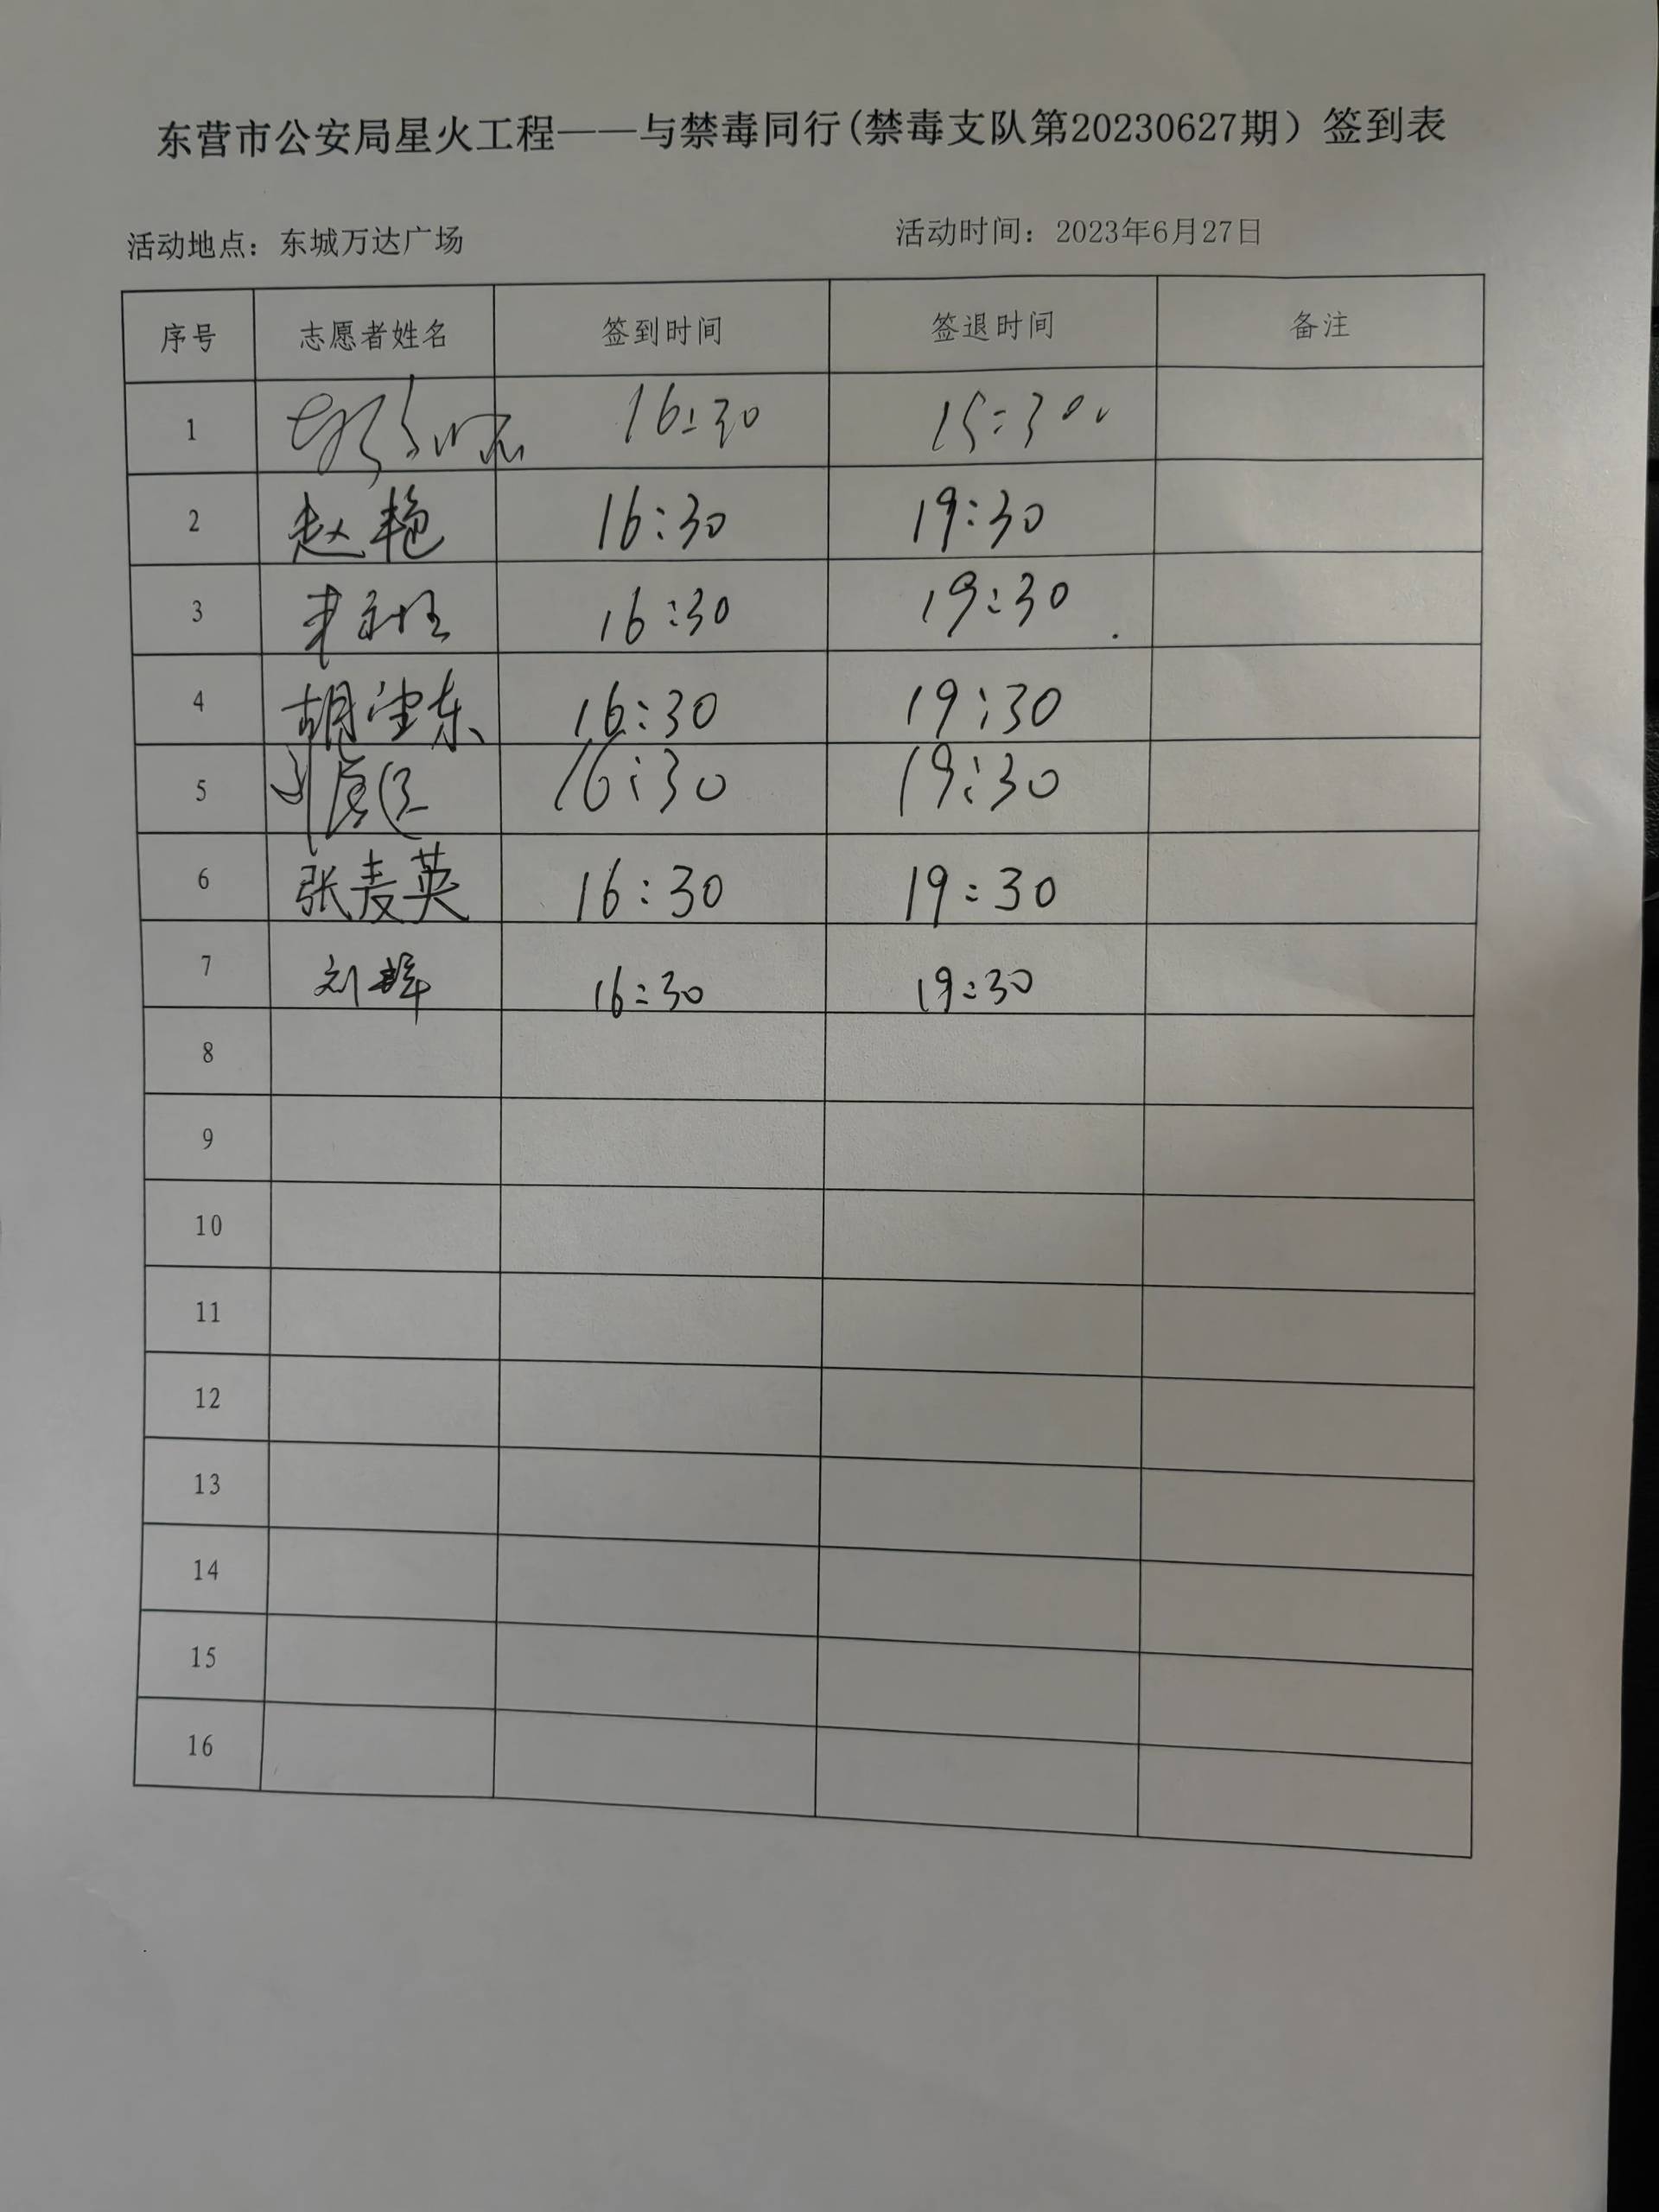 东营市公安局星火工程——与禁毒同行(禁毒支队第20230627期）签到表
活动地点：东城万达广场 活动时间：2023年6月27日
序号 志愿者姓名 签到时间 签退时间 备注
1 16:30
2 赵艳 16:30 19:30
3 16:30 19:30
4 胡 东 16:30 19:30
5 16:30 19:30
6 张麦英 16:30 19:30
7 刘 16:30 19:30
8
9
10
11
12
13
14
15
16